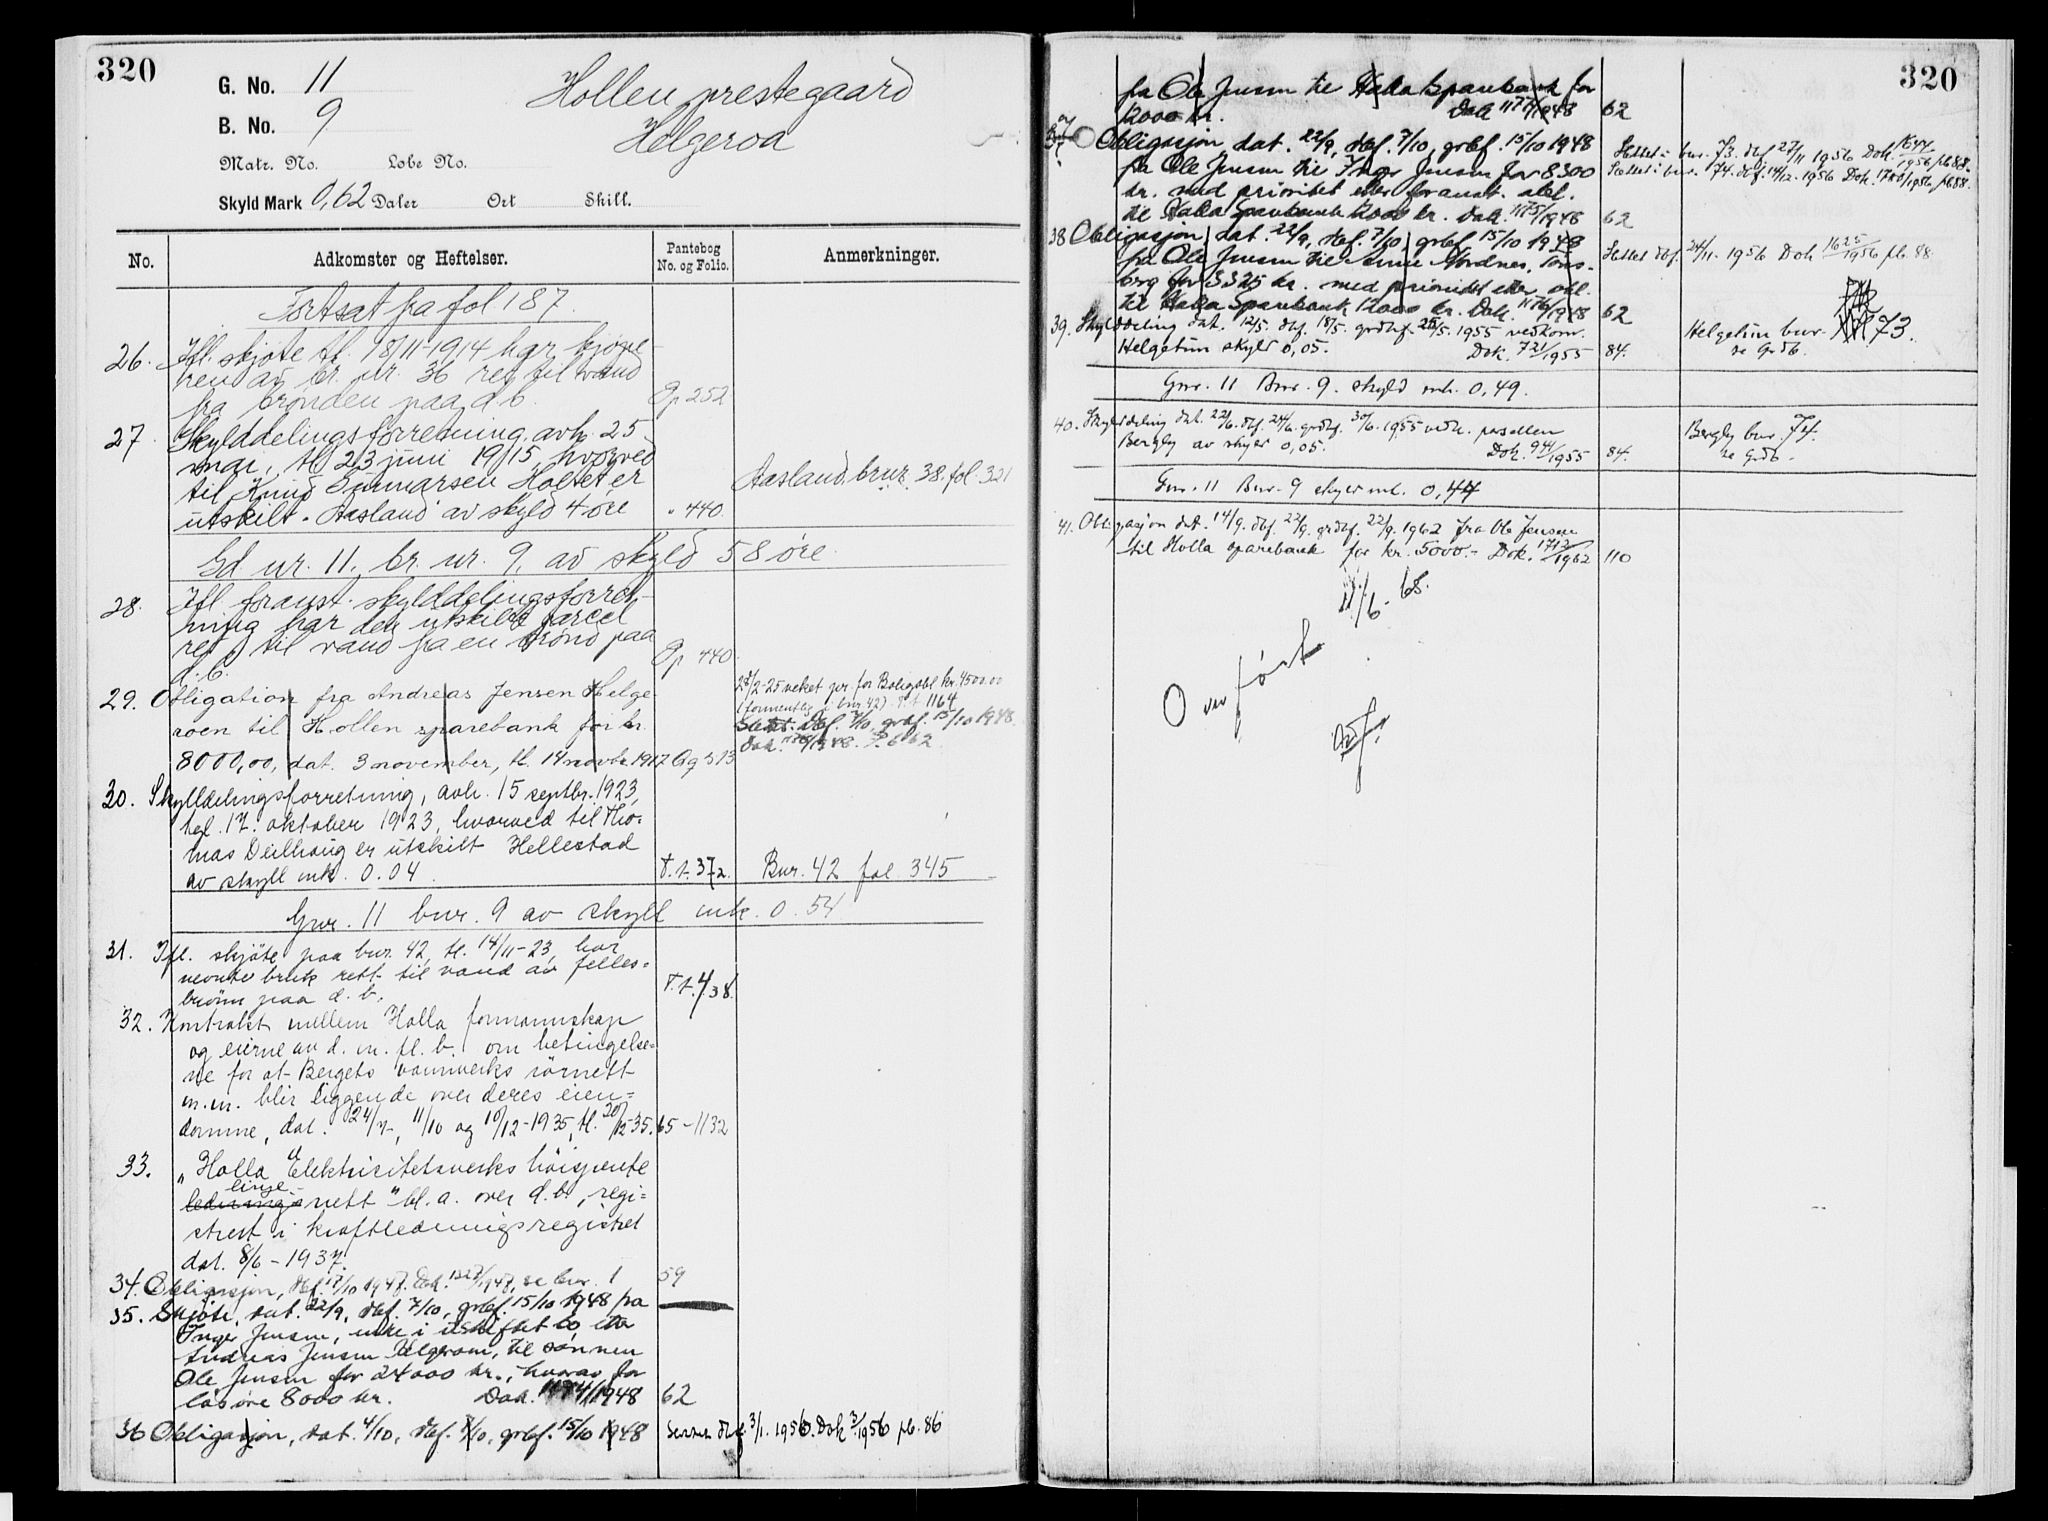 320
G. No. 11
B. No. 9
Hollen prestegaard
Helgeroa
Matr. No. Løbe No.
Skyld Mark 0,62 Daler Ort Skill.
No. Adkomster og Heftelser. Pantebog No. og Folio. Anmerkninger.
Fortsat fra fol. 187.
26. Ifl. skjøte tl. 18/11-1914 har kjøpe-
ren av br. nr. 36 ret til vand
fra brønden paa d. b. Qp 252
27. Skylddelingsforretning avh. 25
mai, tl. 23 juni 1915, hvorved
til Knud Gunnarsen Holtet er
utskilt "Aasland" av skyld 4 øre " 440 Aasland, brnr. 38, fol. 321
Gd nr. 11, br. nr. 9, av skyld 58 øre.
28. Ifl. foranst. skylddelingsforret-
ning har den utskilte parcel
ret til vand fra en brønd paa
d. b. Qp 440
29. Obligation fra Andreas Jensen Helge-
roen til Hollen sparebank for kr.
8000,00, dat. 3 november, tl. 14 novbr. 1917 Qq 593
28/2-25 veket pr. for Boligobl. kr. 4500.00
(formentlig i bnr. 42) T.t. 1164
Slettet. Dbf. 7/10 grbf. 15/10 1948.
30. Skylldelingsforretning, avh. 15 septbr. 1923,
tgl. 17. oktober 1923, hvorved til Tho-
mas Deilhaug er utskilt Hellestad
av skyll mk. 0.04. T.t. 372. Bnr. 42 fol. 345
Gnr. 11 bnr. 9 av skyll mk. 0.54
31. Ifl. skjøte paa bnr. 42, tl. 14/11-23, har
nevnte bruk rett til vand av felles-
brønn paa d. b. T.t. 438.
32. Kontrakt mellem Holla formannskap
og eierne av d. m. fl. b. om betingelse-
ne for at Bergets vannverks rørnett
m.m. blir liggende over deres eien-
domme, dat. 24/7-, 11/10 og 10/12-1935, tl. 20/12-35. 65-1132
33. "Holla Elektrisitetsverks høispente
linje-
ledningsnett" bl. a. over d.b., regi-
strert i kraftledningsregistret
dat. 8/6-1937.
34. Obligasjon, dbf. 17/10 1947. Dok. /1947, se bnr. 1 59
35. Skjøte, dat. 22/9, dbf. 7/10, grbf. 15/10 1948 fra
Inger Jensen, enke i uskiftet bo etter
Andreas Jensen Helgeroen, til sønnen
Ole Jensen for 24000 kr., hvorav for
løsøre 8000 kr. Dok. 1174/1948 62
36 Obligasjon, dat. 4/10, dbf. 7/10, grbf. 15/10 1948 Slettet dbf. 3/1. 1956. Dok 3/1956 pb. 86
320
fra Ole Jensen til Holla Sparebank for
12000 kr. Dok 1177/1948 62
37 Obligasjon, dat. 22/9, dbf. 7/10, grbf. 15/10 1948
fra Ole Jensen til Thor Jensen for 8300
kr. med prioritet etter foranst. obl.
til Holla Sparebank 12000 kr. Dok. 1175/1948 62
Slettet i bnr. 73. dbf 27/11 1956 Dok. 1644/1956 pb 88.
Slettet i bnr. 74. dbf. 14/12. 1956 Dok. /1956, pb 88.
38 Obligasjon, dat. 22/9, dbf. 7/10, grbf. 15/10 1948
fra Ole Jensen til Nordnes, Tøns-
berg for 3325 kr. med prioritet etter obl.
til Holla Sparebank 12000 kr. Dok. 1176/1948 62
Slettet dbf. 24/11. 1956 Dok 1625/1956 pb. 88
39. Skylddeling dat. 12/5. dbf. 18/5. grdbf. 25/5. 1955 vedkom.
Helgetun skyld 0,05. Dok. 721/1955 84. Helgetun bnr. 73.
se grdb.
Gnr. 11 Bnr. 9. skyld mk. 0,49.
40. Skylddeling dat. 22/6. dbf. 24/6. grdbf. 30/6. 1955 vedk. parsellen
Bergly av skyld 0,05. Dok. 941/1955 84. Bergly bnr. 74.
se grdb.
Gnr. 11 Bnr. 9 skyld mk. 0,44
41. Obligasjon dat. 14/9. dbf. 22/9. grdbf. 22/9. 1962 fra Ole Jensen
til Holla sparebank for kr. 5000.- Dok. 1712/1962 110
Overført 11/6-68.